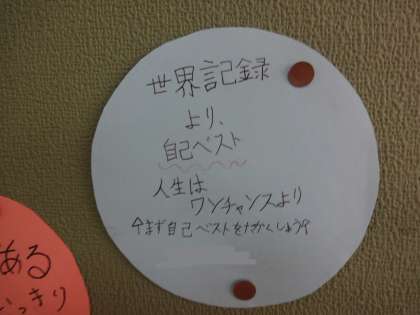 世界記録
より、
自己ベスト
人生は
ワンチャンスより
今まず自己ベストを
ある
っきり